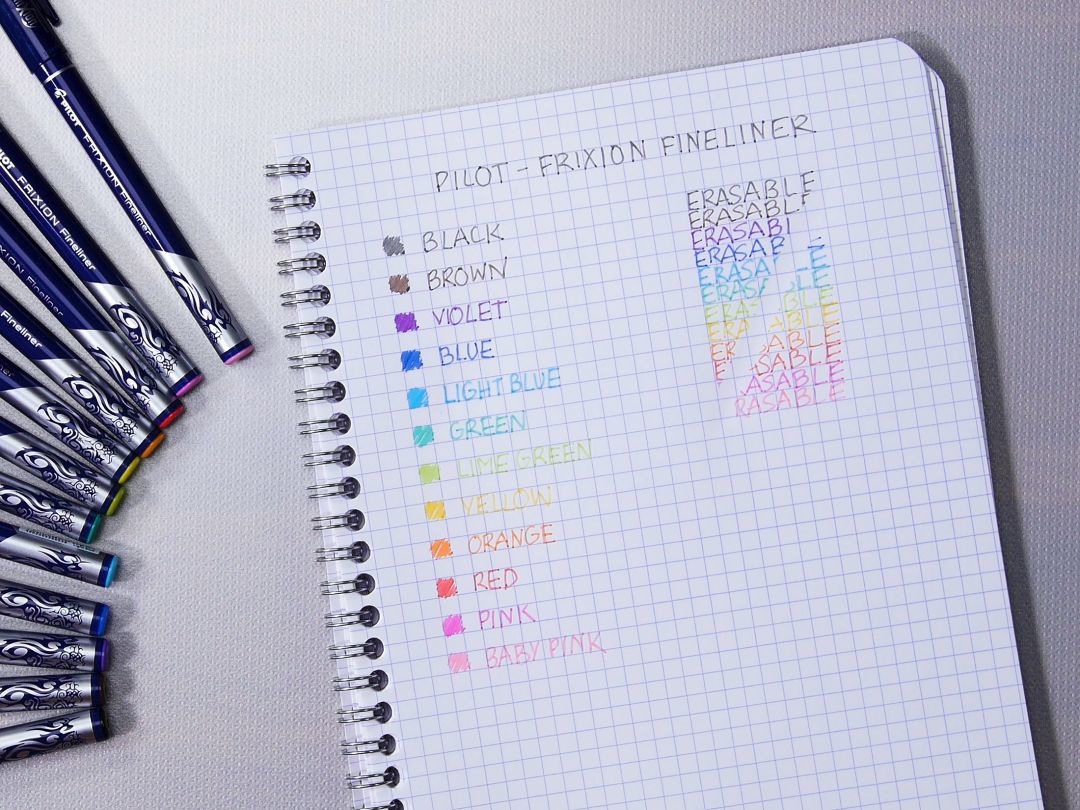 PILOT FRIXION Fineliner
LOT FRIXION Fineliner
XION Fineliner
Fineliner
PILOT - FRIXION FINELINER
BLACK
BROWN
VIOLET
BLUE
LIGHT BLUE
GREEN
LIME GREEN
YELLOW
ORANGE
RED
PINK
BABY PINK
ERASABLE
ERASABLE
ERASAB
ERASAB
ERASA E
ERAS LE
ERA BLE
ERA BLE
ER ABLE
E SABLE
ASABLE
RASABLE